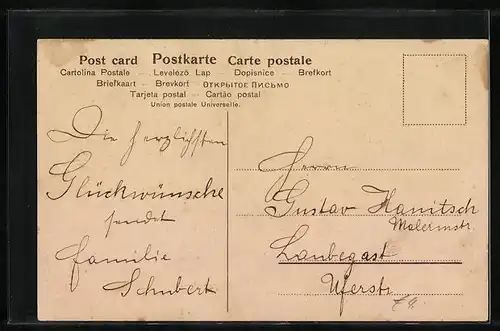 Post card Postkarte Carte postale
Cartolina Postale – Levelező Lap – Dopisnice – Brefkort
Briefkaart – Brevkort ОТКРЫТОЕ ПИСЬМО
Tarjeta postal – Cartão postal
Union postale Universelle.
Die herzlichsten
Glückwünsche
sendet
Familie
Schubert
Herrn
Gustav Hanitsch
Malermstr.
Laubegast
Uferstr.